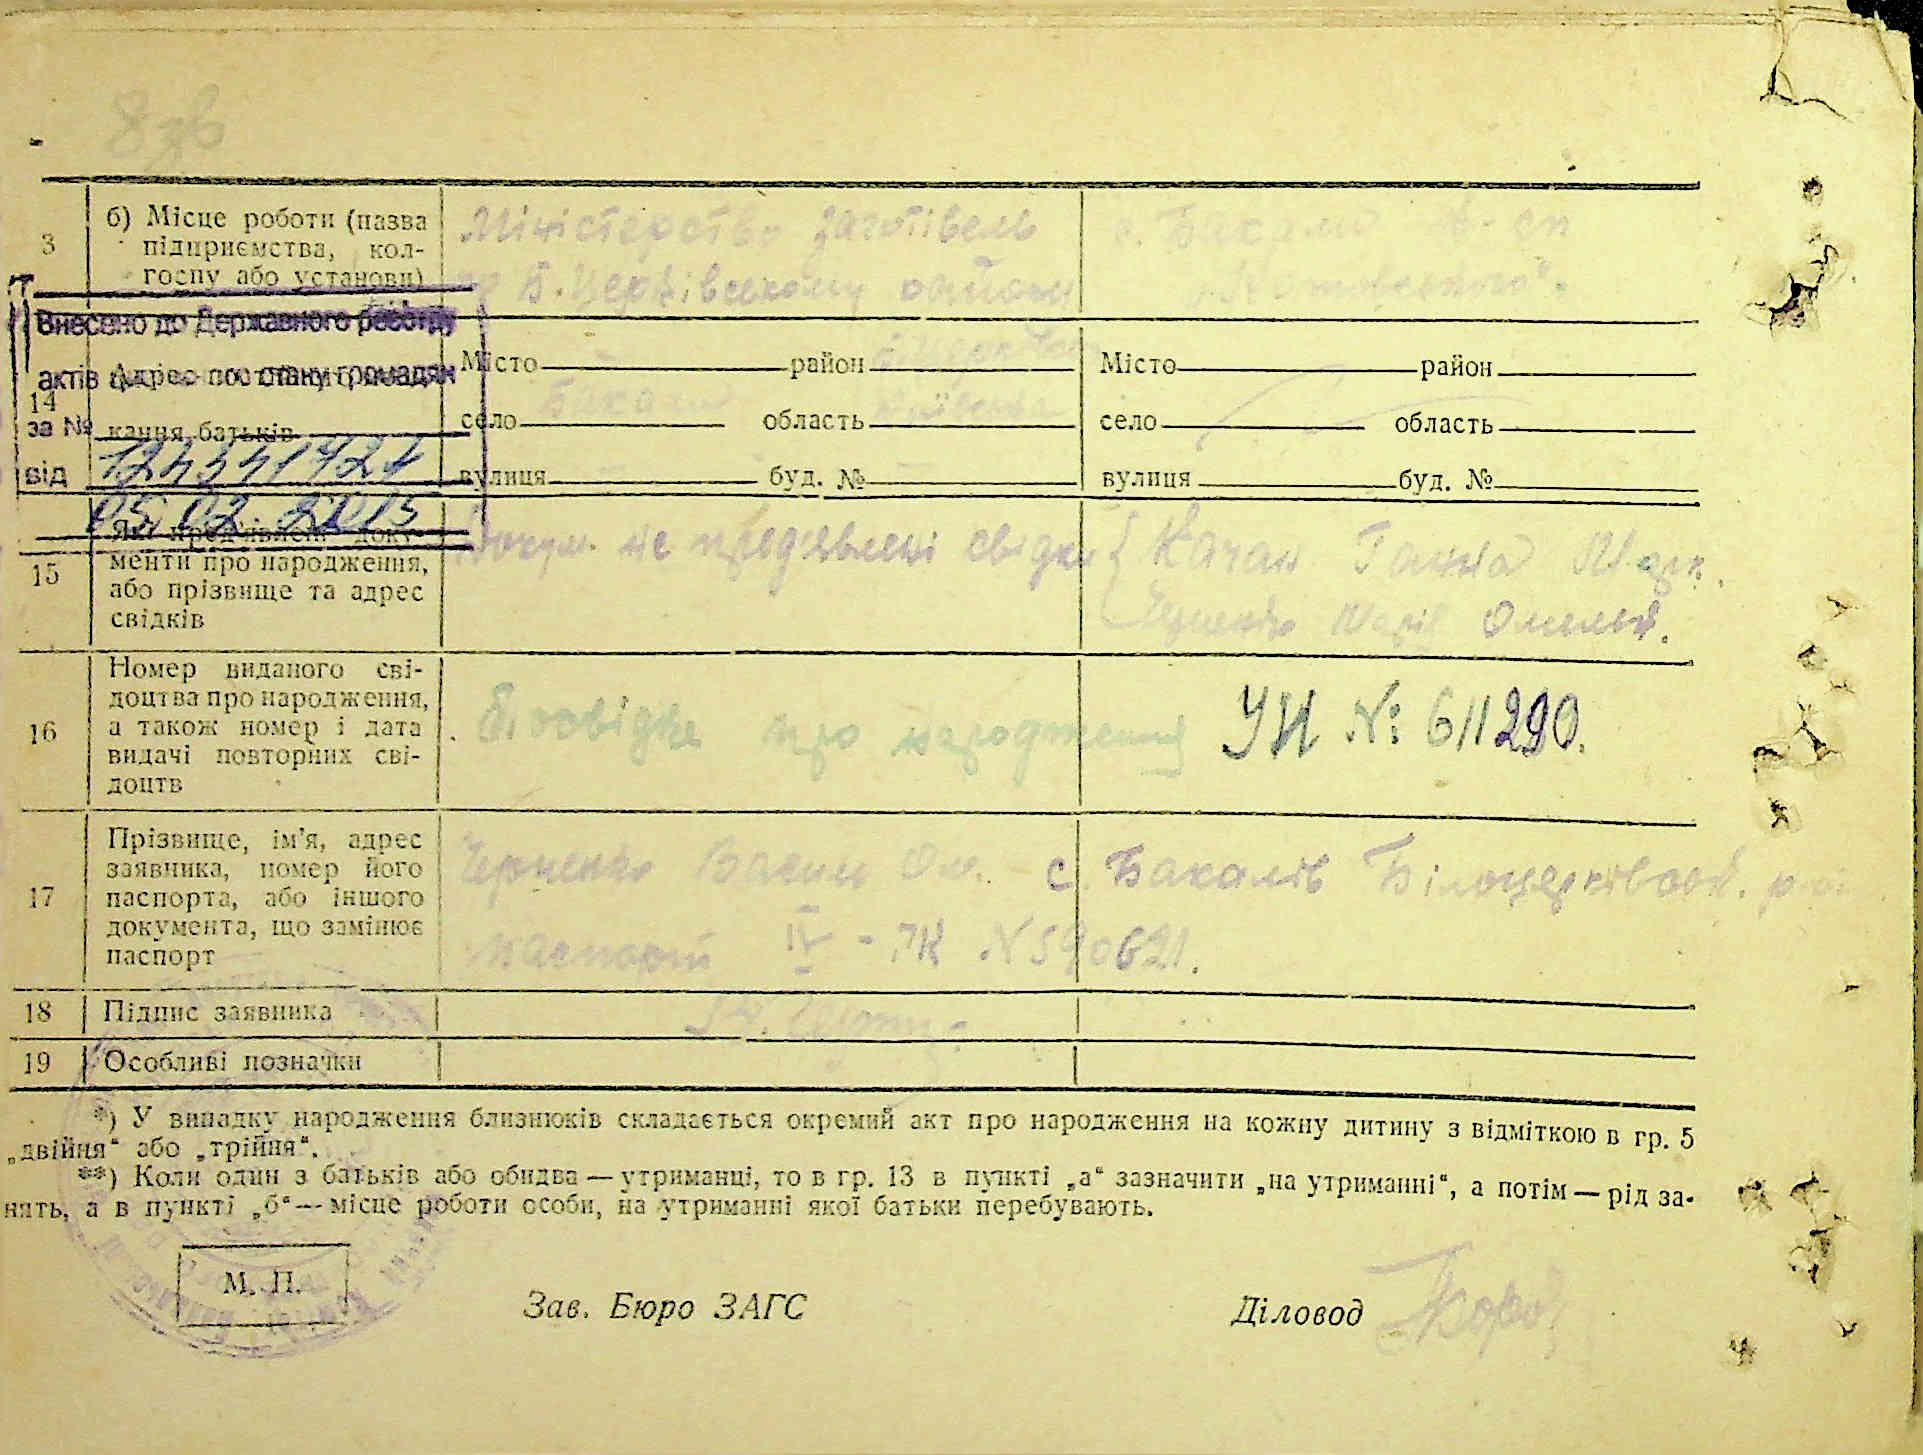 3
б) Місце роботи (назва
підприємства, кол-
госпу або установи)
Міністерство заготівель
по Б. Церківському району
с. Бакали
Внесено до Державного реєстру
актів стану громадян
за №
124341424
від
05 02 2015
14
Адрес пос
кання батьків
Місто район
село Бакали область Київська
вулиця буд. №
Місто район
село область
вулиця буд. №
15
Які пред'явлені доку-
менти про народження,
або прізвище та адрес
свідків
Докум. не предявлені свідки
Качан Ганна
Марії Омелян.
16
Номер виданого сві-
доцтва про народження,
а також номер і дата
видачі повторних сві-
доцтв
про народження УИ №: 611290.
17
Прізвище, ім'я, адрес
заявника, номер його
паспорта, або іншого
документа, що замінює
паспорт
Черненко Васил Ом. с. Бакалів Білоцерківськ. р-ну
паспорт IV - ТК N 590621.
18
Підпис заявника
19
Особливі позначки
*) У випадку народження близнюків складається окремий акт про народження на кожну дитину з відміткою в гр. 5
„двійня“ або „трійня“.
**) Коли один з батьків або обидва — утриманці, то в гр. 13 в пункті „а“ зазначити „на утриманні“, а потім — рід за-
нять, а в пункті „б“ — місце роботи особи, на утриманні якої батьки перебувають.
М. П.
Зав. Бюро ЗАГС
Діловод